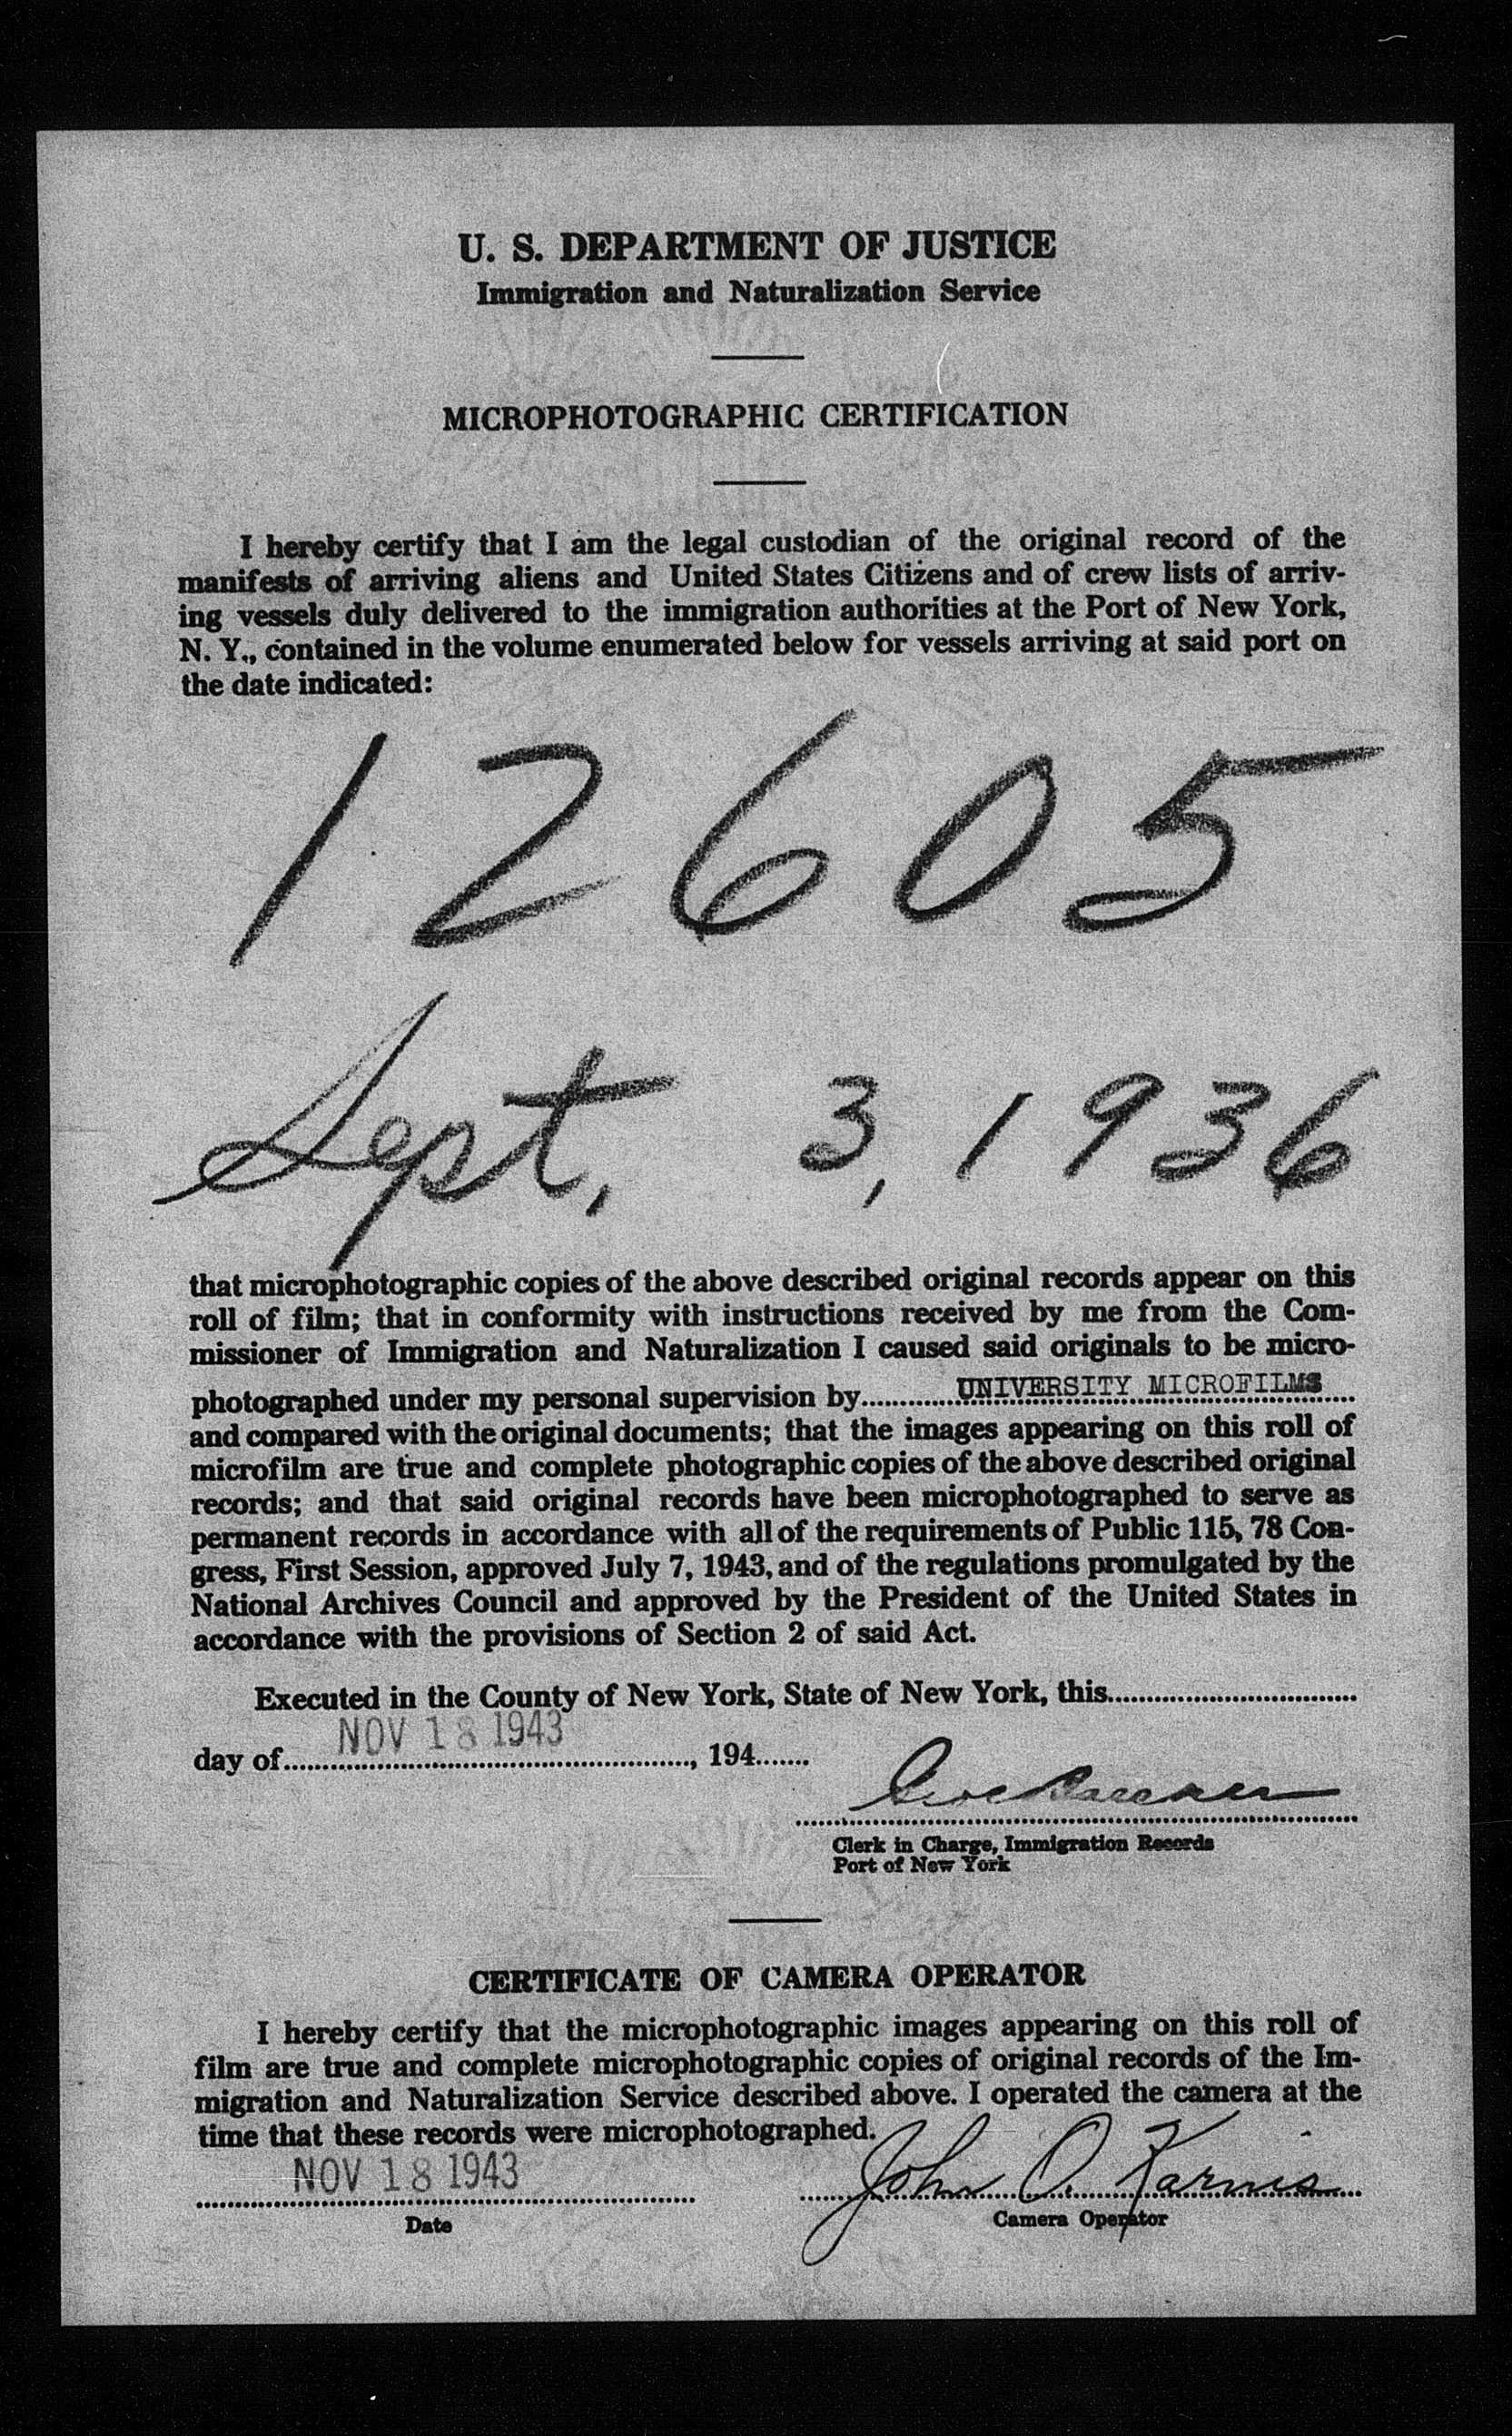 U. S. DEPARTMENT OF JUSTICE
Immigration and Naturalization Service
MICROPHOTOGRAPHIC CERTIFICATION
I hereby certify that I am the legal custodian of the original record of the
manifests of arriving aliens and United States Citizens and of crew lists of arriv-
ing vessels duly delivered to the immigration authorities at the Port of New York,
N. Y., contained in the volume enumerated below for vessels arriving at said port on
the date indicated:
12605
Sept. 3, 1936
that microphotographic copies of the above described original records appear on this
roll of film; that in conformity with instructions received by me from the Com-
missioner of Immigration and Naturalization I caused said originals to be micro-
photographed under my personal supervision by UNIVERSITY MICROFILMS
and compared with the original documents; that the images appearing on this roll of
microfilm are true and complete photographic copies of the above described original
records; and that said original records have been microphotographed to serve as
permanent records in accordance with all of the requirements of Public 115, 78 Con-
gress, First Session, approved July 7, 1943, and of the regulations promulgated by the
National Archives Council and approved by the President of the United States in
accordance with the provisions of Section 2 of said Act.
Executed in the County of New York, State of New York, this
day of NOV 18 1943, 194
Clerk in Charge, Immigration Records
Port of New York
CERTIFICATE OF CAMERA OPERATOR
I hereby certify that the microphotographic images appearing on this roll of
film are true and complete microphotographic copies of original records of the Im-
migration and Naturalization Service described above. I operated the camera at the
time that these records were microphotographed.
NOV 18 1943 John O. Karnis
Date Camera Operator